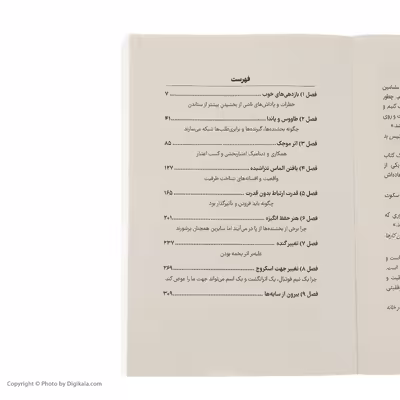 فهرست
فصل ۱) بازدهی‌های خوب ... ۷
خطرات و پاداش‌های ناشی از بخشیدن بیشتر از ستاندن
فصل ۲) طاووس و پاندا ... ۴۱
چگونه بخشنده‌ها، گیرنده‌ها و برابری‌طلب‌ها شبکه می‌سازند
فصل ۳) اثر موجک ... ۸۵
همکاری و دینامیک امتیازبخشی و کسب اعتبار
فصل ۴) یافتن الماس نتراشیده ... ۱۲۷
واقعیت و افسانه‌های شناخت ظرفیت
فصل ۵) قدرت ارتباط بدون قدرت ... ۱۶۵
چگونه باید فروتن و تأثیرگذار بود
فصل ۶) هنر حفظ انگیزه ... ۲۰۱
چرا برخی از بخشنده‌ها از پا در می‌آیند اما سایرین همچنان پرشورند
فصل ۷) تغییر گنده ... ۲۳۷
غلبه بر اثر پخمه بودن
فصل ۸) تغییر جهت اسکروچ ... ۲۶۹
چرا یک تیم فوتبال، یک اثرانگشت و یک اسم می‌تواند جهت ما را عوض کند
فصل ۹) بیرون از سایه‌ها ... ۳۰۹
Copyright © Photo by Digikala.com